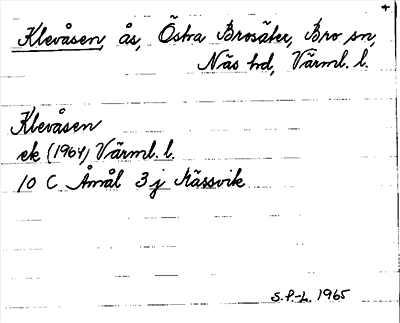 4
Klevåsen, ås, Östra Brosäter, Bro sn,
Näs hd, Värml. l.
Klevåsen
ek (1964) Värml. l.
10 C Åmål 3 j Kässvik
S. P-L. 1965